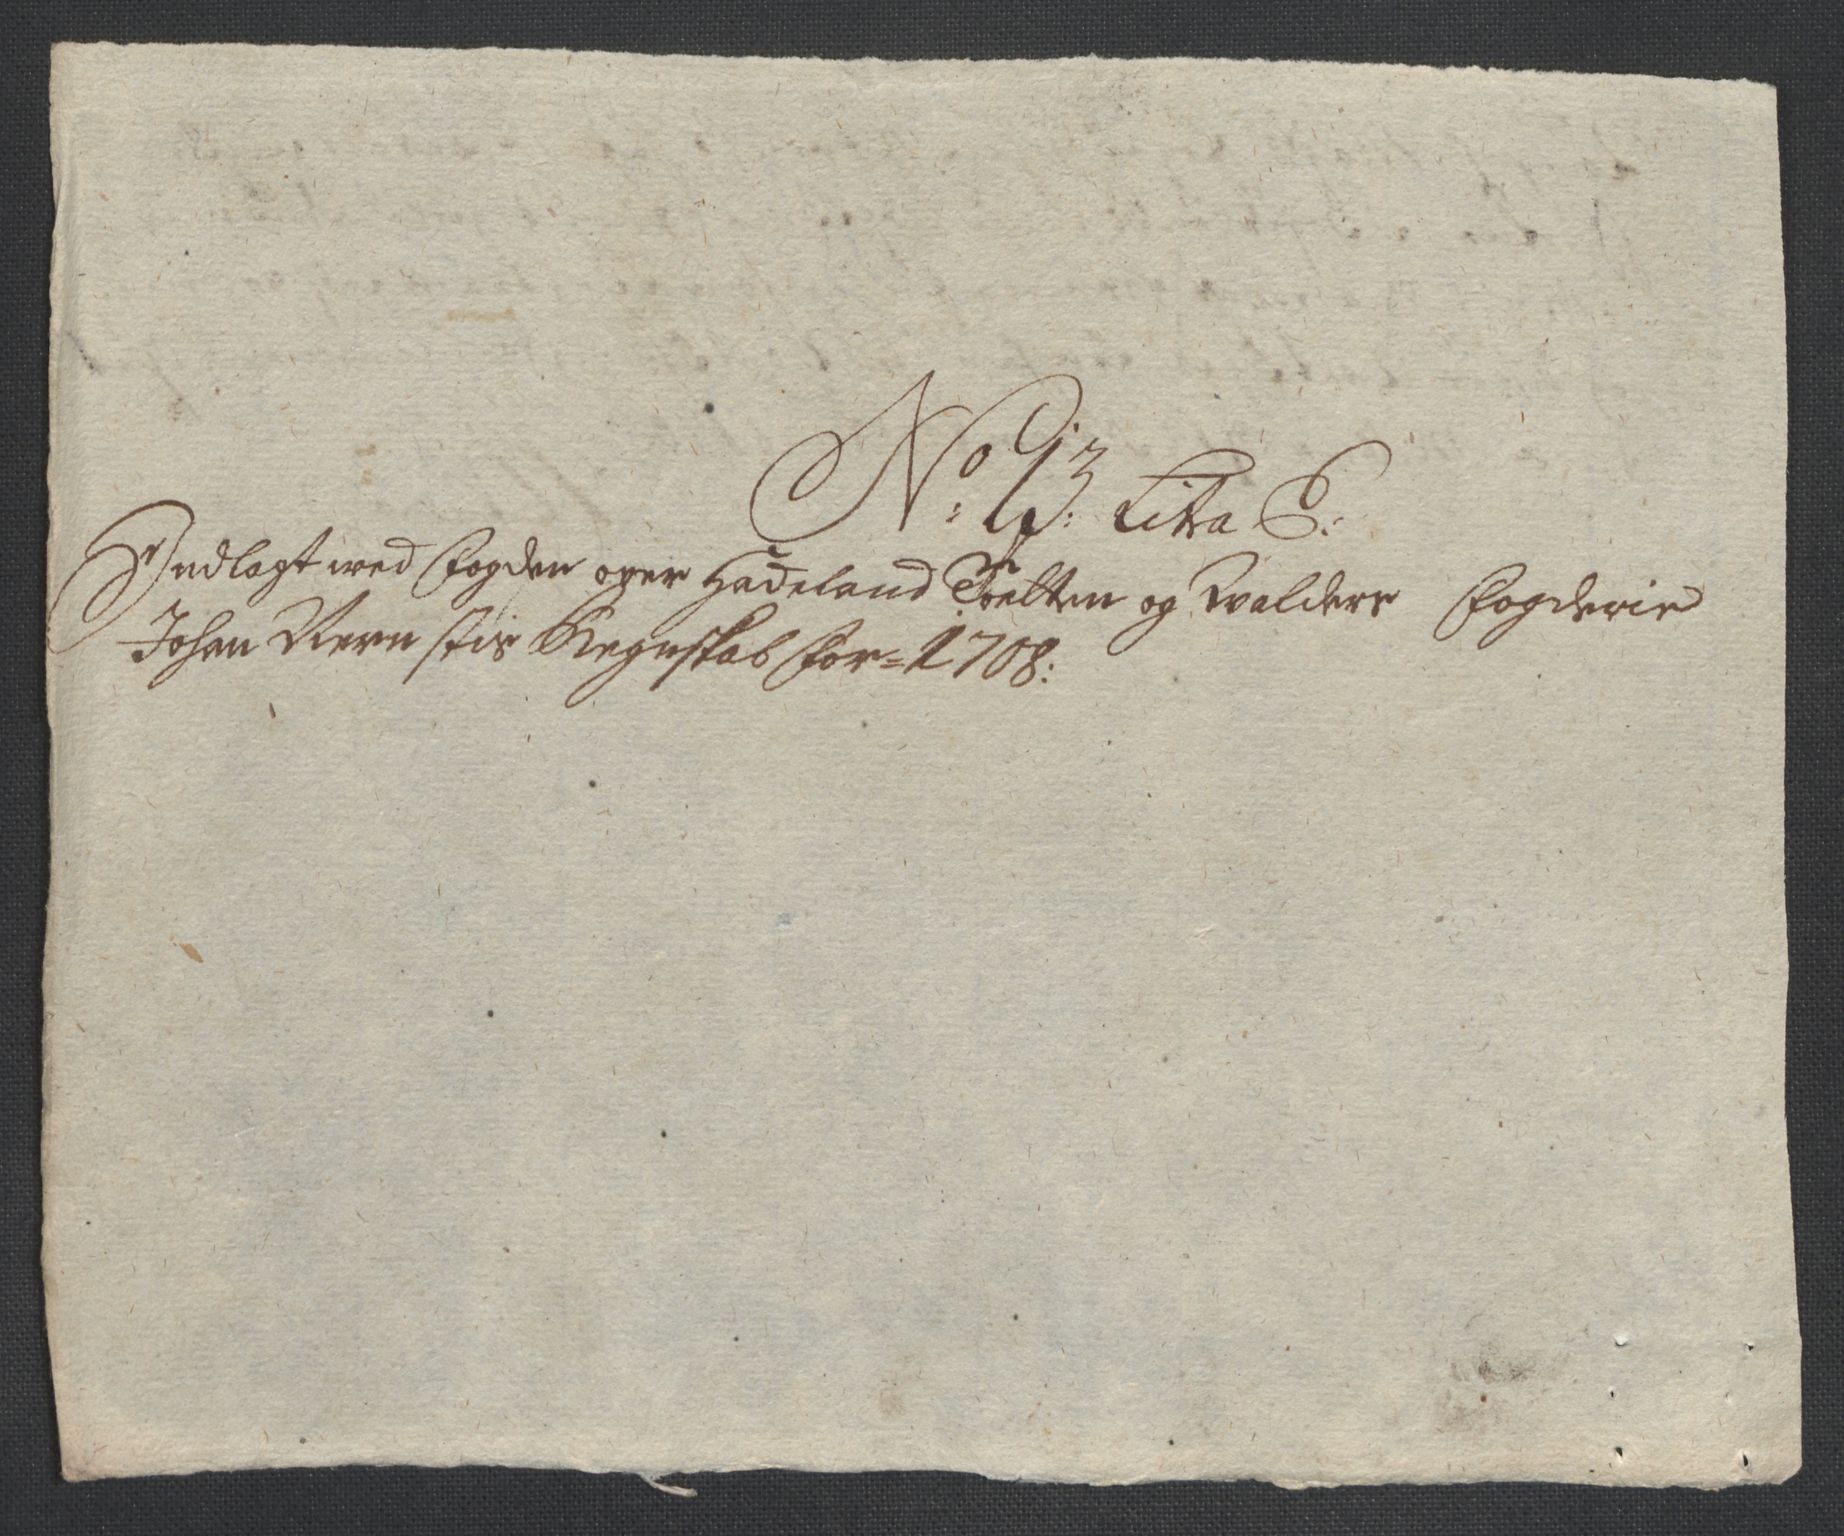 No: 13: Litra E:
Indlagt wed Fogden ower Hadeland Toetten og Walders Fogderie
Johan Niern sis Regnskab for 1708: